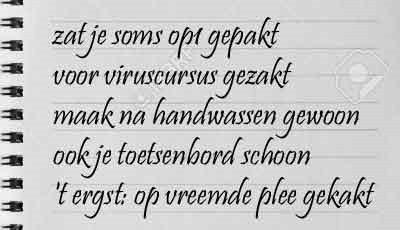 zat je soms op1 gepakt
voor viruscursus gezakt
maak na handwassen gewoon
ook je toetsenbord schoon
't ergst: op vreemde plee gekakt